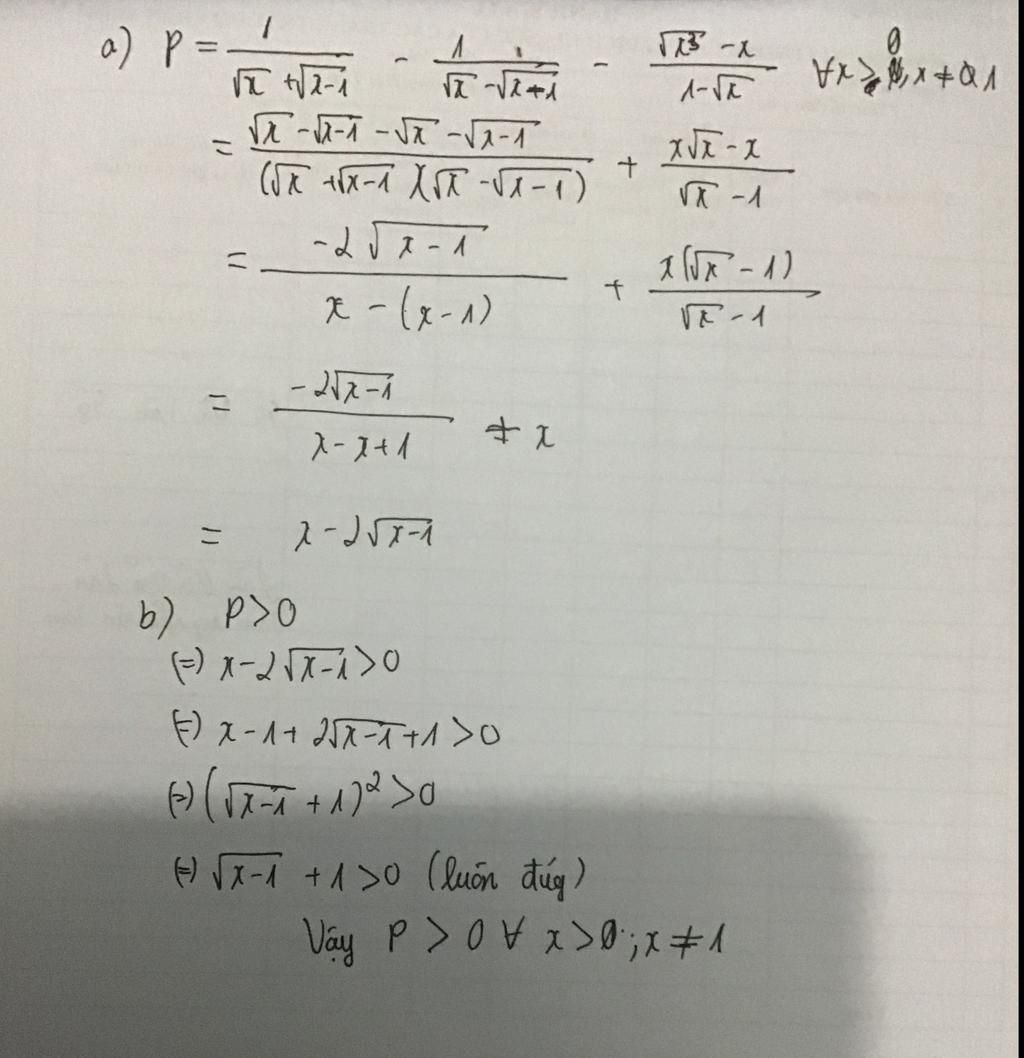 a) P = 1/(√x + √(x-1)) - 1/(√x - √(x-1)) - (√x³ - x)/(1-√x) ∀x ≥ 0, x ≠ 1
= (√x - √(x-1) - √x - √(x-1))/((√x + √(x-1))(√x - √(x-1))) + (x√x - x)/(√x - 1)
= (-2√(x-1))/(x - (x-1)) + (x(√x - 1))/(√x - 1)
= (-2√(x-1))/(x - x + 1) + x
= x - 2√(x-1)
b) P > 0
(=) x - 2√(x-1) > 0
(=) x - 1 + 2√(x-1) + 1 > 0
(=) (√(x-1) + 1)² > 0
(=) √(x-1) + 1 > 0 (luôn đúg)
Vậy P > 0 ∀ x > 0; x ≠ 1